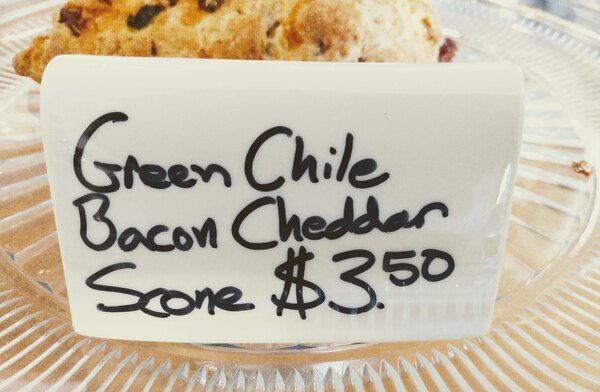 Green Chile
Bacon Cheddar
Scone $3.50